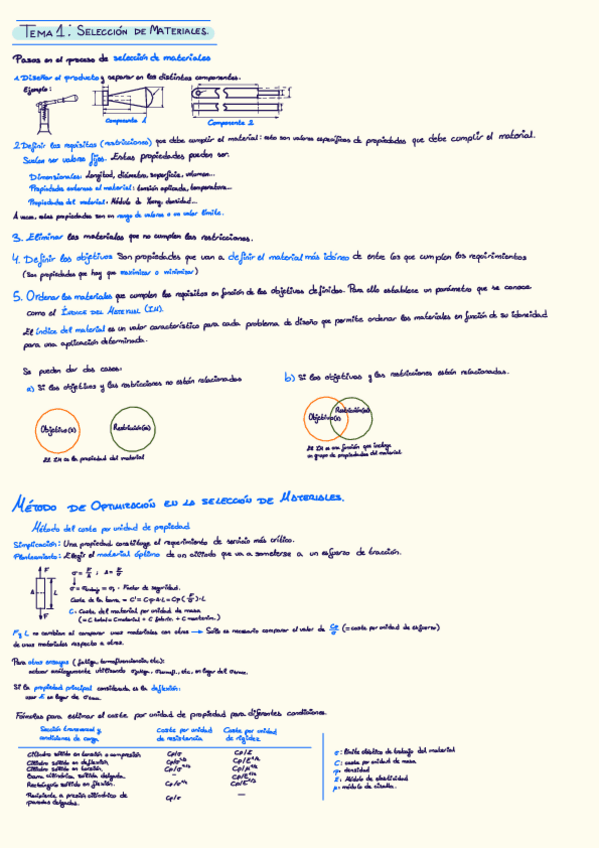 TEMA 1: SELECCIÓN DE MATERIALES.
Pasos en el proceso de selección de materiales
1. Diseñar el producto y separar en los distintos componentes.
Ejemplo:
Componente 1
Componente 2
2. Definir los requisitos (restricciones) que debe cumplir el material: estos son valores específicos de propiedades que debe cumplir el material.
Suelen ser valores fijos. Estas propiedades pueden ser:
Dimensionales: Longitud, diámetro, superficie, volumen...
Propiedades externas al material: tensión aplicada, temperatura...
Propiedades del material: Módulo de Young, densidad...
A veces, estas propiedades son un rango de valores o un valor límite.
3. Eliminar los materiales que no cumplen las restricciones.
4. Definir los objetivos Son propiedades que van a definir el material más idóneo de entre los que cumplen los requirimientos
(Son propiedades que hay que maximizar o minimizar)
5. Ordenar los materiales que cumplen los requisitos en función de los objetivos definidos. Para ello establece un parámetro que se conoce
como el ÍNDICE DEL MATERIAL (IM).
El índice del material es un valor característico para cada problema de diseño que permite ordenar los materiales en función de su idoneidad
para una aplicación determinada.
Se pueden dar dos casos:
a) Si los objetivos y las restricciones no están relacionados
b) Si los objetivos y las restricciones están relacionados.
Objetivo(s)
Restricción(es)
Objetivo(s)
Restricción(es)
El IM es la propiedad del material
El IM es una función que incluye
un grupo de propiedades del material
MÉTODO DE OPTIMIZACIÓN EN LA SELECCIÓN DE MATERIALES.
Método del coste por unidad de propiedad
Simplificación: Una propiedad constituye el requerimiento de servicio más crítico.
Planteamiento: Elegir el material óptimo de un cilindro que va a someterse a un esfuerzo de tracción.
F
A
L
F
Factor de seguridad.
Coste de la barra
C: Coste del material por unidad de masa
(= C total = C material + C fabric. + C mantenim.)
F y L no cambian al comparar unos materiales con otros → Sólo es necesario comparar el valor de Cρ/σ (= coste por unidad de esfuerzo)
de unos materiales respecto a otros.
Para otros ensayos (fatiga, termofluencia, etc.):
actuar análogamente utilizando
etc, en lugar del
Si la propiedad principal considerada es la deflexión:
usar E en lugar de
Fórmulas para estimar el coste por unidad de propiedad para diferentes condiciones.
Sección transversal y
condiciones de carga
Coste por unidad
de resistencia
Coste por unidad
de rigidez
Cilindro sólido en tensión o compresión Cρ/σ Cρ/E
Cilindro sólido en deflexión
Cilindro sólido en torsión
Barra cilíndrica, sólida delgada. —
Rectángulo sólido en flexión.
Recipiente a presión cilíndrico de
paredes delgadas. Cρ/σ —
σ: límite elástico de trabajo del material
C: coste por unidad de masa
ρ: densidad
E: Módulo de elasticidad
μ: módulo de cizalla.